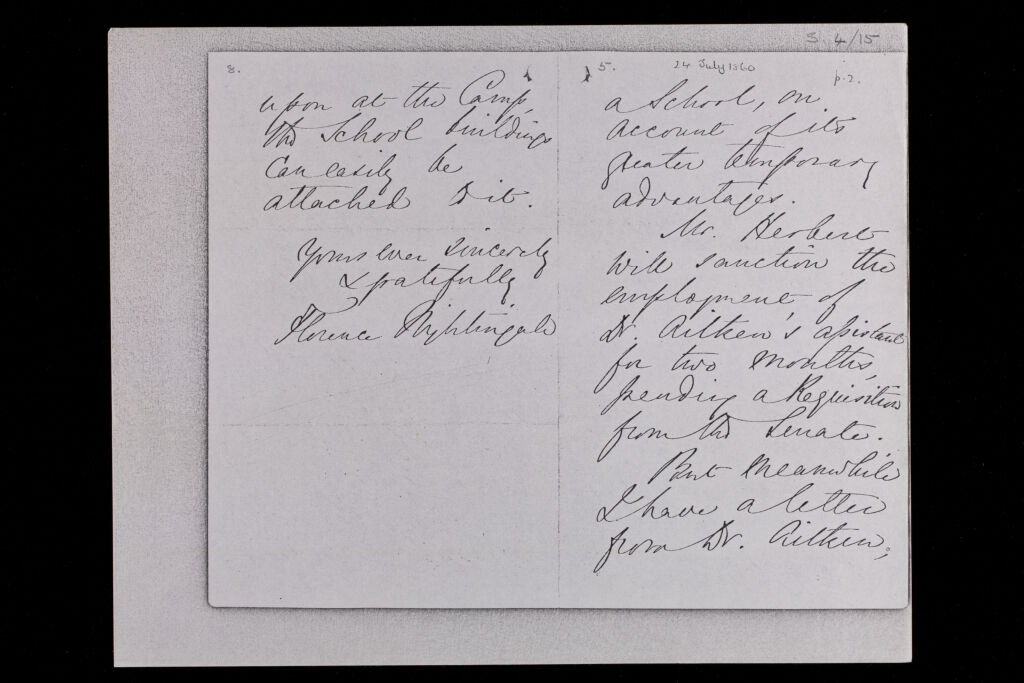 S. 4/15
8.
upon at the Camp,
the School buildings
can easily be
attached to it.
Yours ever sincerely
& gratefully
Florence Nightingale
5.
24 July 1860
p. 2.
a School, on
account of its
greater temporary
advantages.
Mr. Herbert
will sanction the
employment of
Dr. Aitken's assistant
for two months,
pending a Requisition
from the Senate.
But meanwhile
I have a letter
from Dr. Aitken,